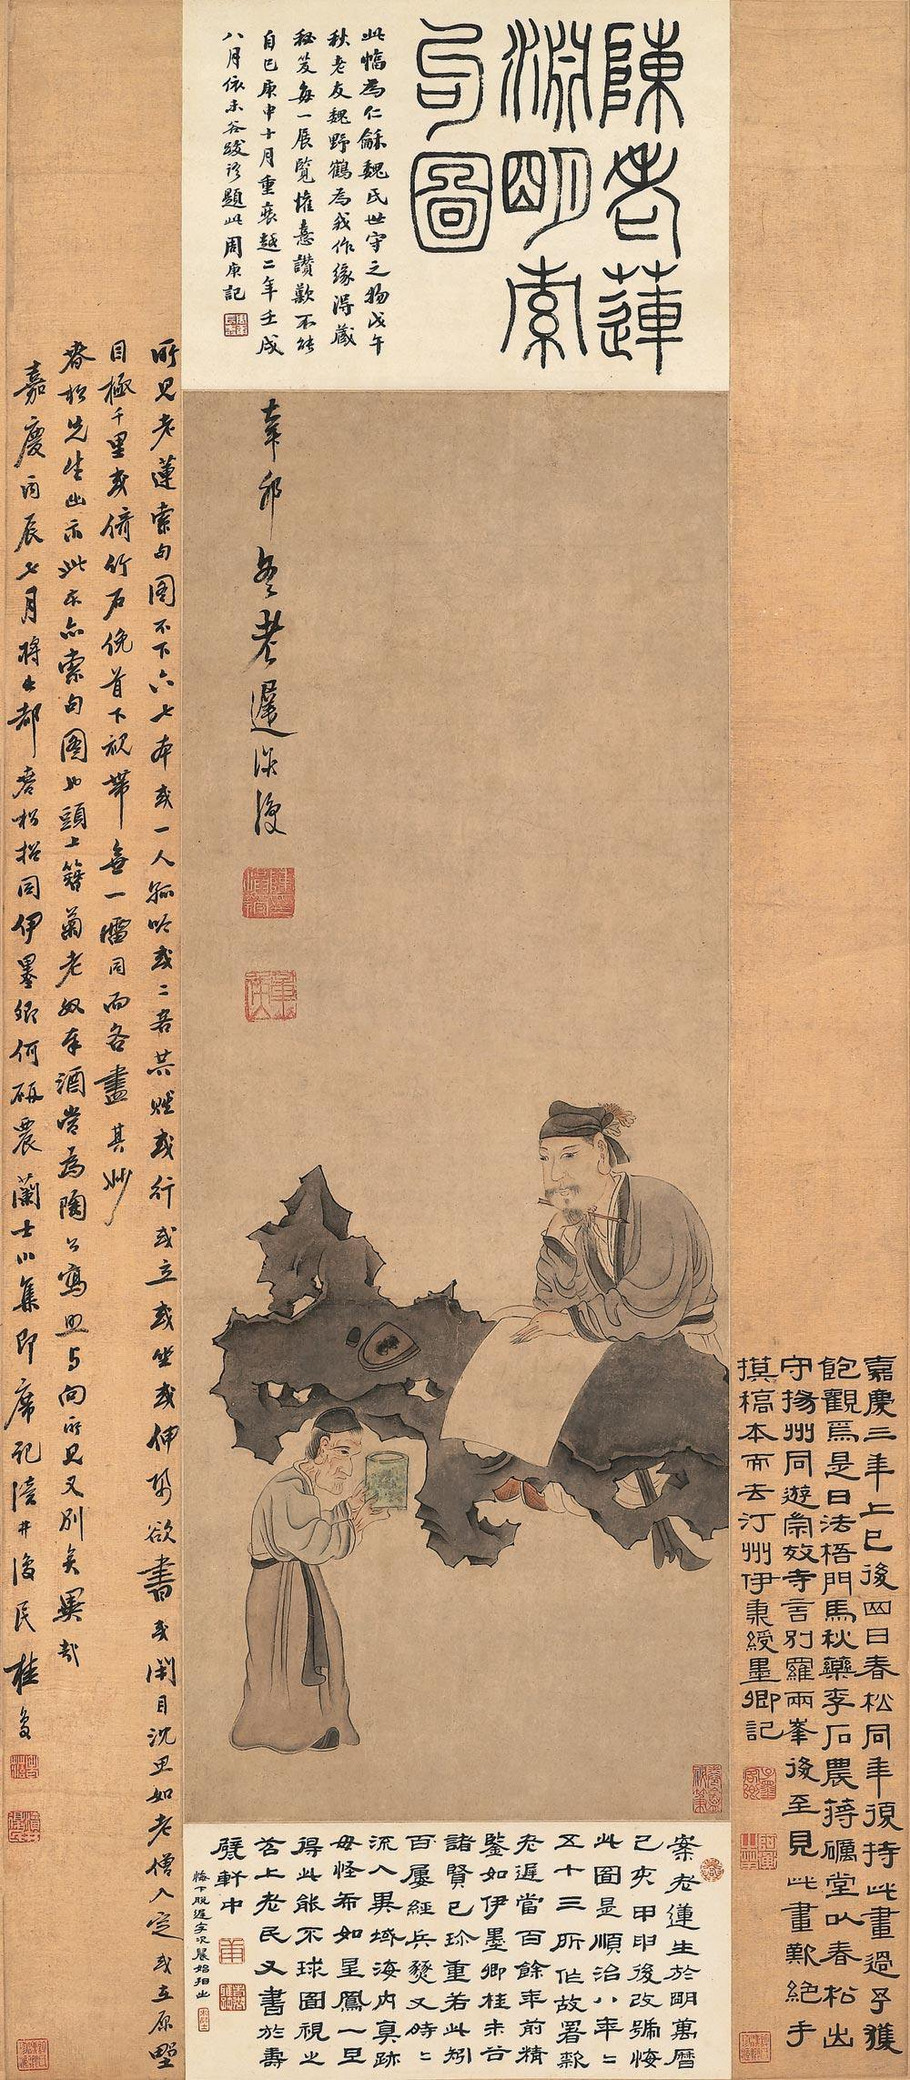 陳老蓮
淵明索
句圖
此幅為仁龢魏氏世守之物戊午
秋老友魏野鶴為我作緣得藏
秘笈每一展覽懽憙讚歎不能
自已庚申十月重裝越二年壬戌
八月依未谷跋語題此周庚記
辛卯冬老遲洪綬
嘉慶三年上巳後四日春松同年復持此畫過予獲
飽觀焉是日法梧門馬秋藥李石農蔣礪堂以春松出
守揚州同遊崇效寺言別羅兩峯後至見此畫歎絕手
摸稿本而去汀州伊秉綬墨卿記
所見老蓮索句圖不下六七本或一人孤吟或二客共賦或行或立或坐或伸紙欲書或閉目沈思如老僧入定或立原野
目極千里或倚竹石俛首下視帶無一雷同而各盡其妙
春松先生出示此本亦索句圖也頭上簪菊老奴奉酒當為陶公寫照與向所見又別矣異哉
嘉慶丙辰七月將出都春松招同伊墨卿何硯農蘭士小集即席記瀆井復民桂馥
案老蓮生於明萬曆
己亥甲申後改號悔
此圖是順治八年年
五十三所作故署款
老遲當百餘年前精
鑒如伊墨卿桂未谷
諸賢已珍重若此矧
而屢經兵燹又時時
流入異域海內真跡
毋怪希如星鳳一旦
得此能不球圖視之
苕上老民又書於壽
軒中
悔下脫遲字次晨始拍出